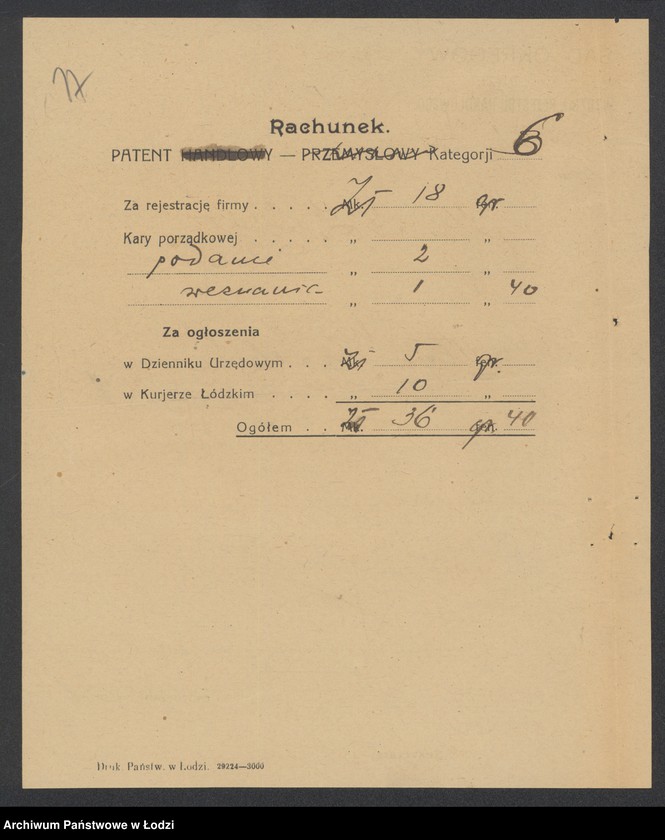 Rachunek.
PATENT HANDLOWY — PRZEMYSŁOWY Kategorji 6
Za rejestrację firmy . . . . . Zł 18 gr.
Kary porządkowej . . . . . „ „
podanie „ 2 „
zeznanie „ 1 „ 40
Za ogłoszenia
w Dzienniku Urzędowym . . . Zł 5 gr.
w Kurjerze Łódzkim . . . . „ 10 „
Ogółem . . Zł 36 gr. 40
Druk Państw. w Łodzi. 29224—3000
Archiwum Państwowe w Łodzi